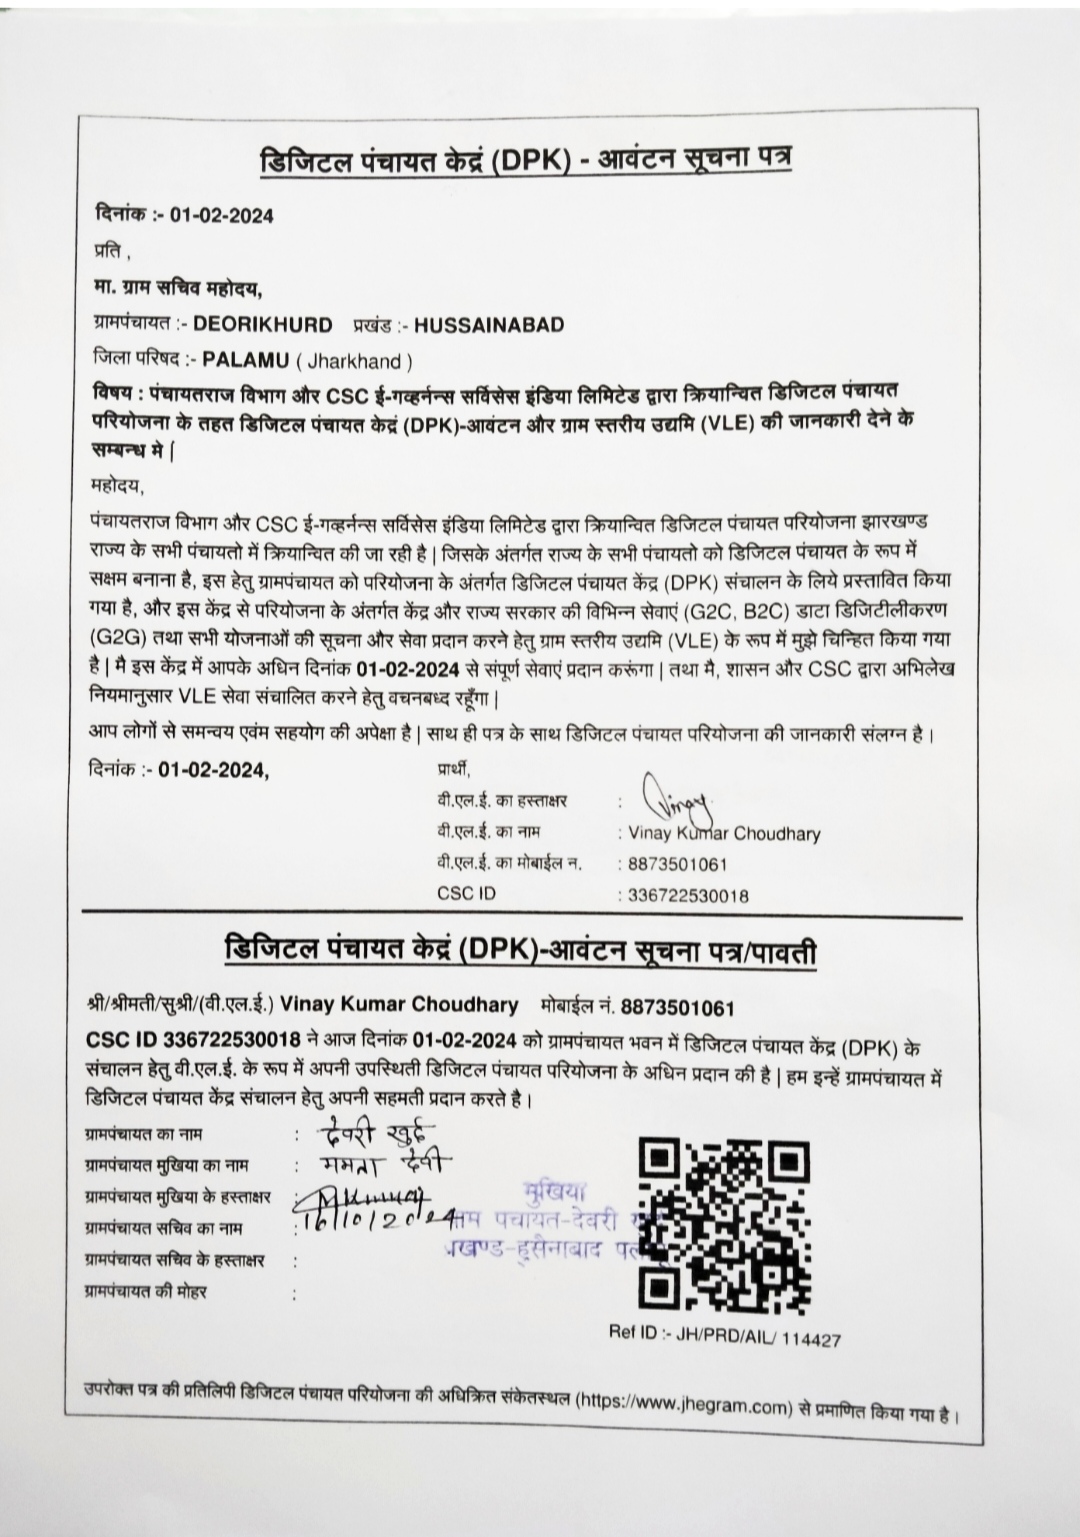 डिजिटल पंचायत केद्रं (DPK) - आवंटन सूचना पत्र
दिनांक :- 01-02-2024
प्रति ,
मा. ग्राम सचिव महोदय,
ग्रामपंचायत :- DEORIKHURD प्रखंड :- HUSSAINABAD
जिला परिषद :- PALAMU ( Jharkhand )
विषय : पंचायतराज विभाग और CSC ई-गव्हर्नन्स सर्विसेस इंडिया लिमिटेड द्वारा क्रियान्वित डिजिटल पंचायत
परियोजना के तहत डिजिटल पंचायत केद्रं (DPK)-आवंटन और ग्राम स्तरीय उद्यमि (VLE) की जानकारी देने के
सम्बन्ध मे |
महोदय,
पंचायतराज विभाग और CSC ई-गव्हर्नन्स सर्विसेस इंडिया लिमिटेड द्वारा क्रियान्वित डिजिटल पंचायत परियोजना झारखण्ड
राज्य के सभी पंचायतो में क्रियान्वित की जा रही है | जिसके अंतर्गत राज्य के सभी पंचायतो को डिजिटल पंचायत के रूप में
सक्षम बनाना है, इस हेतु ग्रामपंचायत को परियोजना के अंतर्गत डिजिटल पंचायत केंद्र (DPK) संचालन के लिये प्रस्तावित किया
गया है, और इस केंद्र से परियोजना के अंतर्गत केंद्र और राज्य सरकार की विभिन्न सेवाएं (G2C, B2C) डाटा डिजिटीलीकरण
(G2G) तथा सभी योजनाओं की सूचना और सेवा प्रदान करने हेतु ग्राम स्तरीय उद्यमि (VLE) के रूप में मुझे चिन्हित किया गया
है | मै इस केंद्र में आपके अधिन दिनांक 01-02-2024 से संपूर्ण सेवाएं प्रदान करूंगा | तथा मै, शासन और CSC द्वारा अभिलेख
नियमानुसार VLE सेवा संचालित करने हेतु वचनबध्द रहूँगा |
आप लोगों से समन्वय एवंम सहयोग की अपेक्षा है | साथ ही पत्र के साथ डिजिटल पंचायत परियोजना की जानकारी संलग्न है ।
दिनांक :- 01-02-2024,
प्रार्थी,
वी.एल.ई. का हस्ताक्षर : Vinay
वी.एल.ई. का नाम : Vinay Kumar Choudhary
वी.एल.ई. का मोबाईल न. : 8873501061
CSC ID : 336722530018
डिजिटल पंचायत केद्रं (DPK)-आवंटन सूचना पत्र/पावती
श्री/श्रीमती/सुश्री/(वी.एल.ई.) Vinay Kumar Choudhary मोबाईल नं. 8873501061
CSC ID 336722530018 ने आज दिनांक 01-02-2024 को ग्रामपंचायत भवन में डिजिटल पंचायत केंद्र (DPK) के
संचालन हेतु वी.एल.ई. के रूप में अपनी उपस्थिती डिजिटल पंचायत परियोजना के अधिन प्रदान की है | हम इन्हें ग्रामपंचायत में
डिजिटल पंचायत केंद्र संचालन हेतु अपनी सहमती प्रदान करते है ।
ग्रामपंचायत का नाम : देवरी खुर्द
ग्रामपंचायत मुखिया का नाम : ममता देवी
ग्रामपंचायत मुखिया के हस्ताक्षर :
16/10/2024
ग्रामपंचायत सचिव का नाम :
ग्रामपंचायत सचिव के हस्ताक्षर :
ग्रामपंचायत की मोहर :
मुखिया
ग्राम पंचायत-देवरी
प्रखण्ड-हुसैनाबाद
Ref ID :- JH/PRD/AIL/ 114427
उपरोक्त पत्र की प्रतिलिपी डिजिटल पंचायत परियोजना की अधिक्रित संकेतस्थल (https://www.jhegram.com) से प्रमाणित किया गया है ।